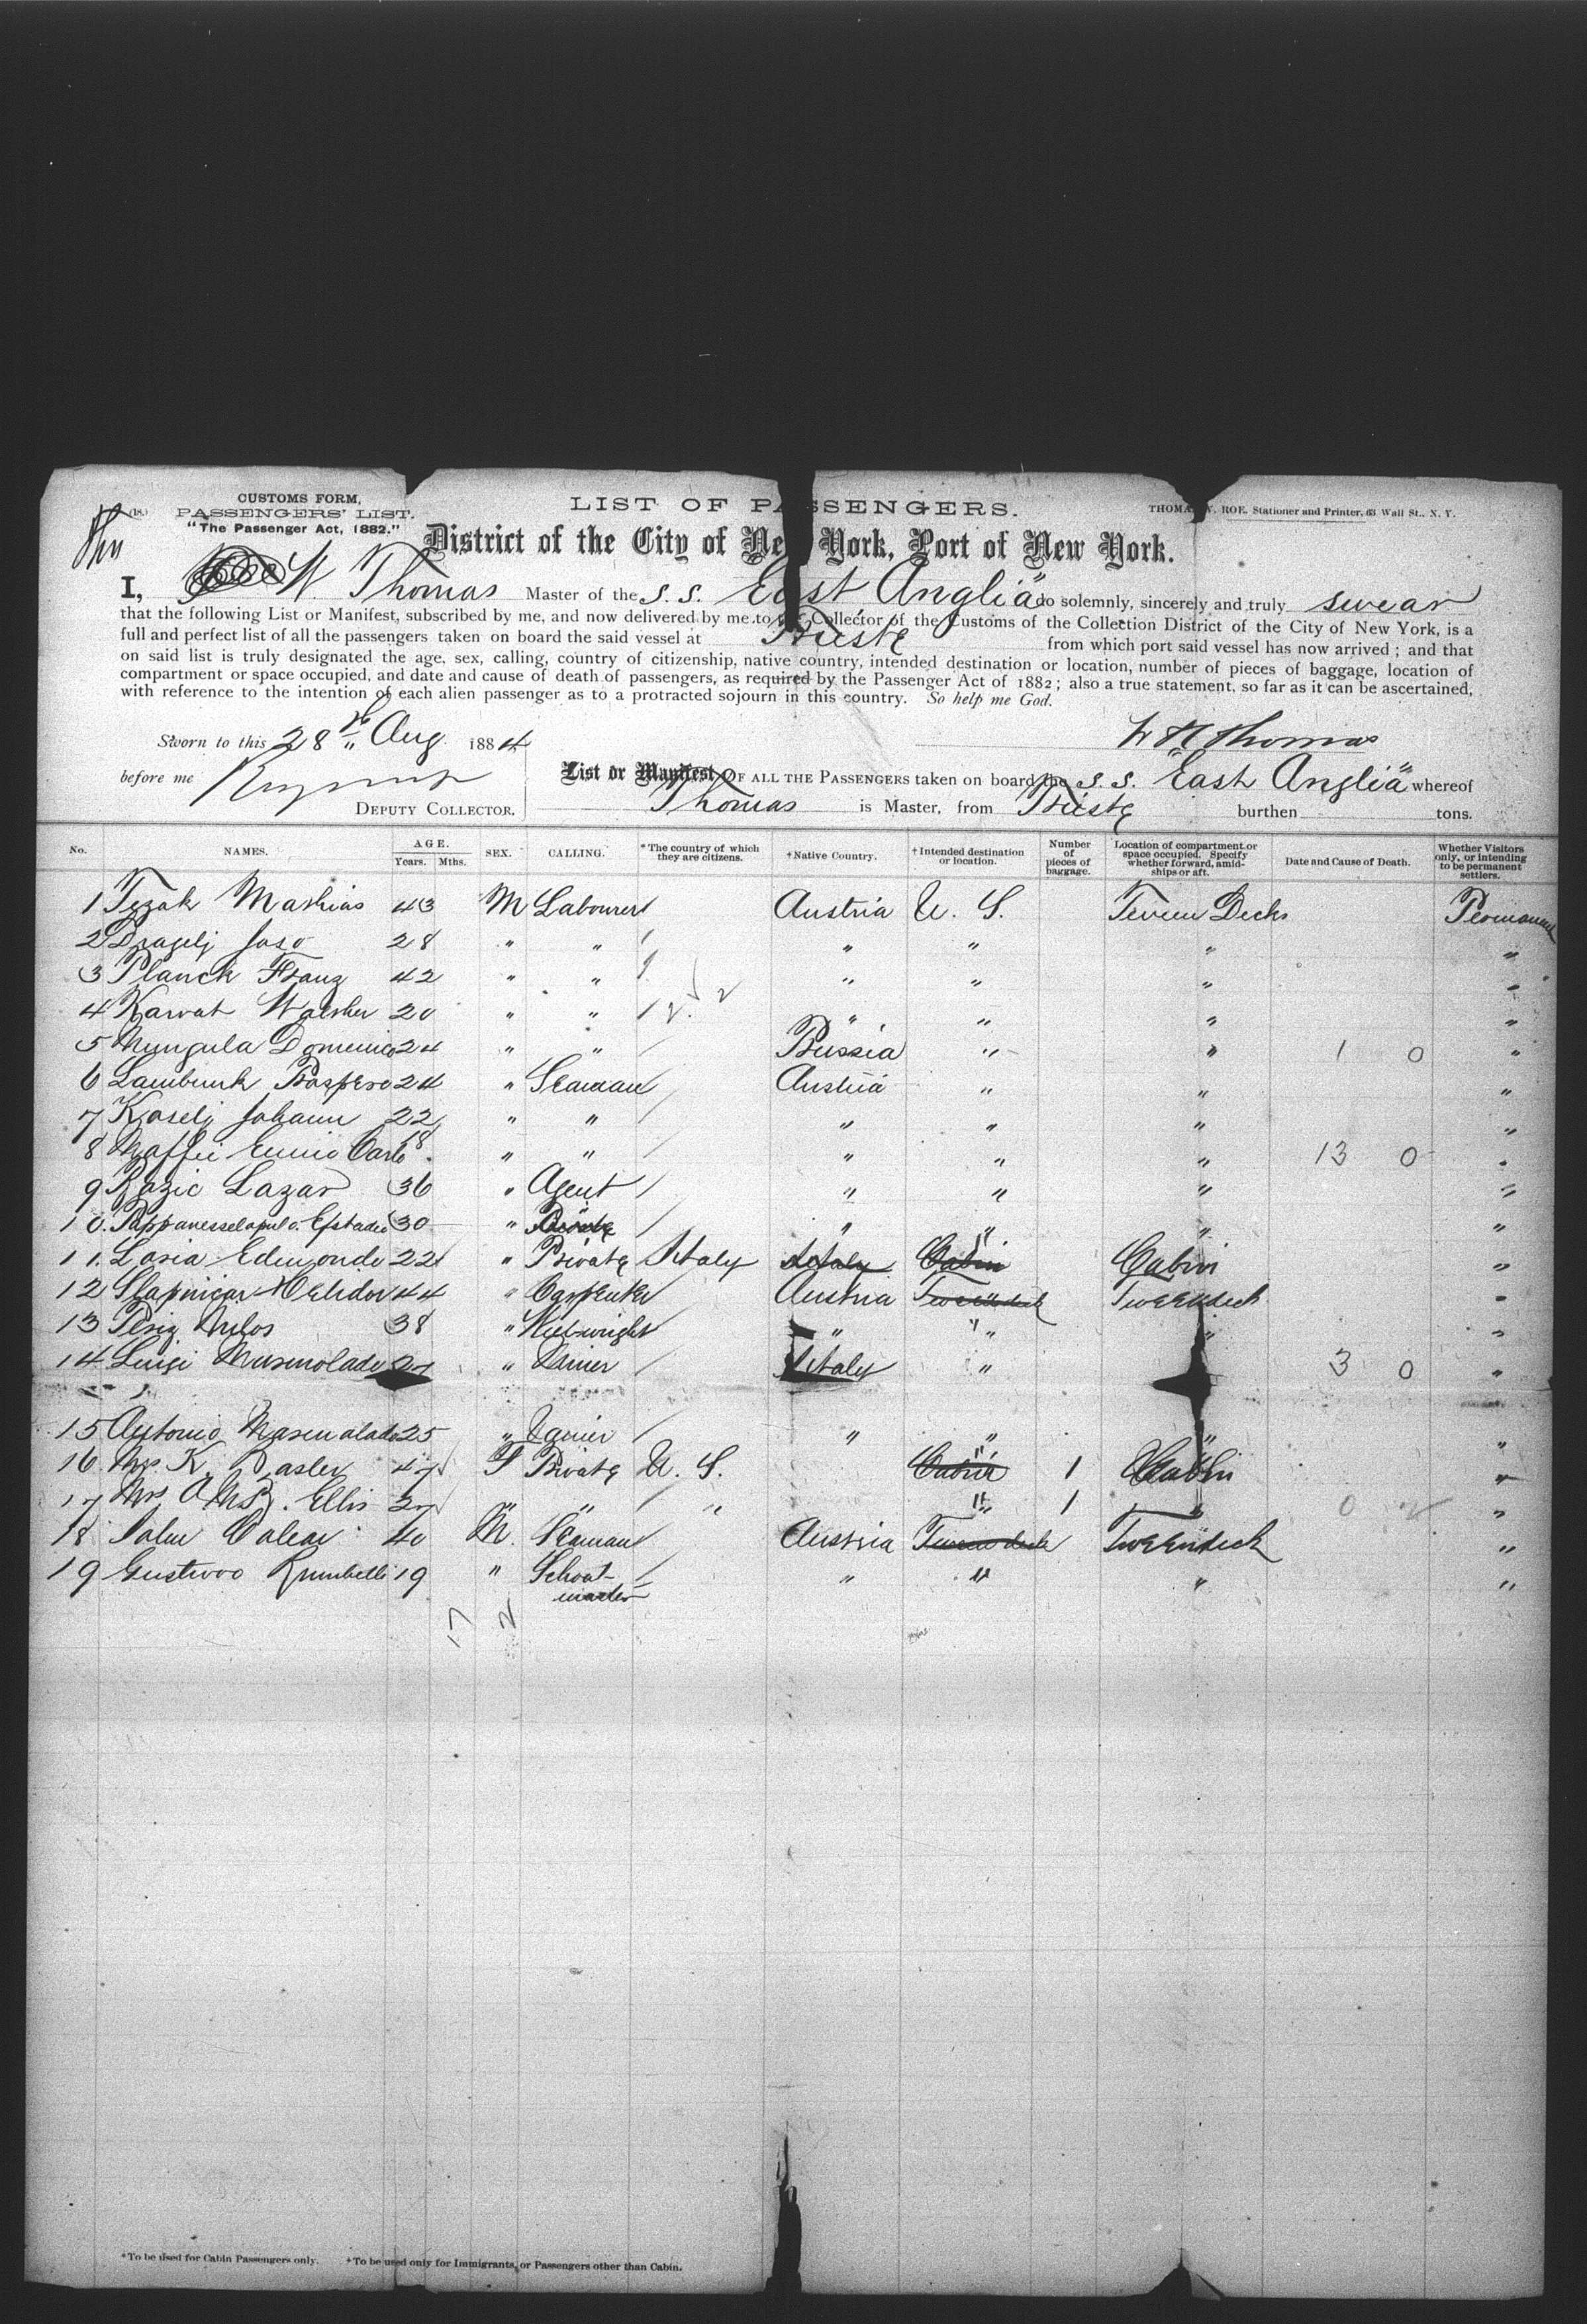 CUSTOMS FORM,
PASSENGERS' LIST.
"The Passenger Act, 1882."
LIST OF PASSENGERS.
THOMAS W. ROE, Stationer and Printer, 63 Wall St., N. Y.
District of the City of New York, Port of New York.
I, W. Thomas Master of the S. S. East Anglia do solemnly, sincerely and truly swear
that the following List or Manifest, subscribed by me, and now delivered by me to the Collector of the Customs of the Collection District of the City of New York, is a
full and perfect list of all the passengers taken on board the said vessel at Trieste from which port said vessel has now arrived; and that
on said list is truly designated the age, sex, calling, country of citizenship, native country, intended destination or location, number of pieces of baggage, location of
compartment or space occupied, and date and cause of death of passengers, as required by the Passenger Act of 1882; also a true statement, so far as it can be ascertained,
with reference to the intention of each alien passenger as to a protracted sojourn in this country. So help me God.
Sworn to this 28th Aug 1884
W H Thomas
before me
DEPUTY COLLECTOR.
List or Manifest OF ALL THE PASSENGERS taken on board the S. S. "East Anglia" whereof
Thomas is Master, from Trieste burthen tons.
No. NAMES. AGE. Years. Mths. SEX. CALLING. *The country of which they are citizens. †Native Country. †Intended destination or location. Number of pieces of baggage. Location of compartment or space occupied. Specify whether forward, amidships or aft. Date and Cause of Death. Whether Visitors only, or intending to be permanent settlers.
1 Tezak Mathias 43 M Labourer Austria U. S. Tween Decks Permanent
2 Dragelj Jaso 28 " " " " " "
3 Planck Franz 42 " " " " " "
4 Karvat Walther 20 " " " " " "
5 Mungula Domenico 24 " " Prussia " " 1 0 "
6 Prospero 24 " Seaman Austria " " "
7 Kaselj Johann 22 " " " " " "
8 Maffei Ennio Carlo 18 " " " " " 13 0 "
9 Razic Lazar 36 " Agent " " " "
10. Efstadio 30 " Private " " " "
11. Lasia Edmondo 22 " Private Italy Italy Cabin Cabin "
12 Slapnicar 44 " Carpenter Austria Tweendeck Tweendeck "
13 Perig Milos 38 " " " " "
14 Luigi Musmolado 27 " Italy " 3 0 "
15 Antonio Masmolado 25 " " " " "
16 Mrs K. Rasler 47 F Private U. S. Cabin 1 Cabin "
17 Mrs Ellis 27 " " " " 1 " 0 "
18 40 M. Seaman Austria Tweendeck Tweendeck "
19 Gustavo Rumbelli 19 " School-master " " " "
17 2
*To be used for Cabin Passengers only. †To be used only for Immigrants, or Passengers other than Cabin.